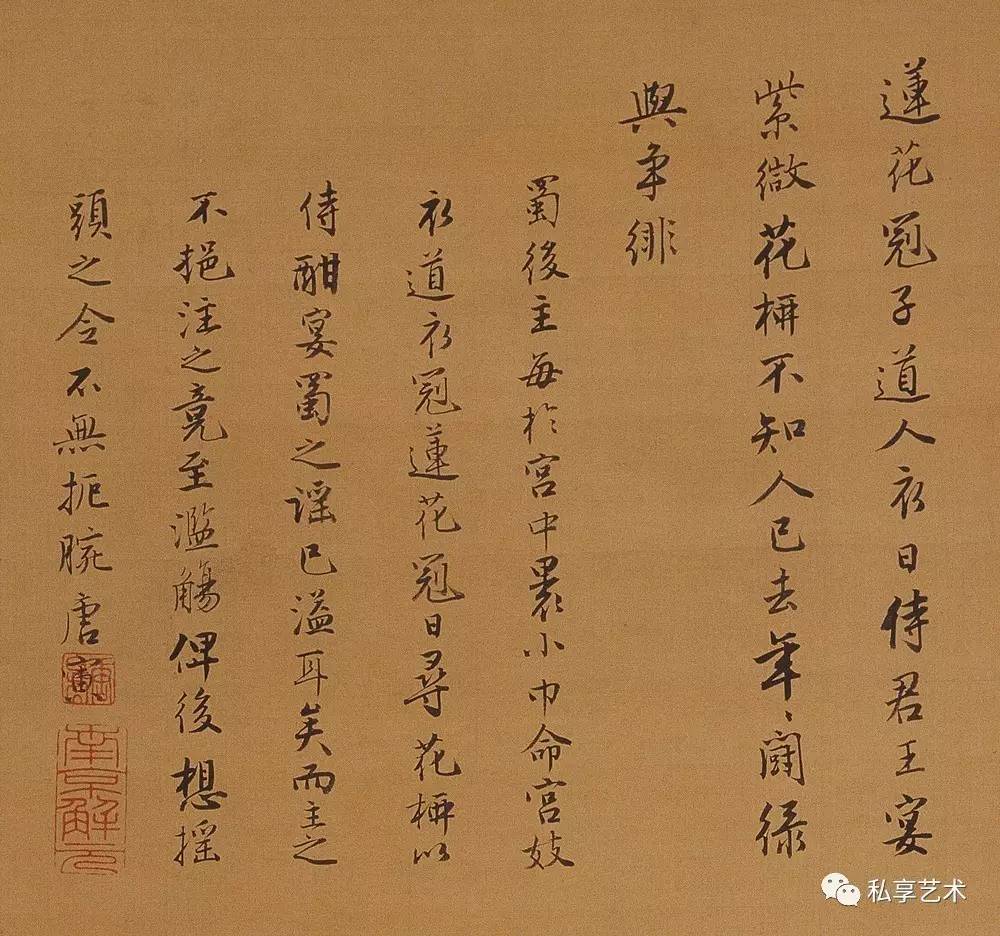 蓮花冠子道人衣日侍君王宴
紫微花柳不知人已去年〻鬪綠
與爭緋
蜀後主每於宮中裹小巾命宮妓
衣道衣冠蓮花冠日尋花柳以
侍酣宴蜀之謠已溢耳矣而主之
不挹注之竟至濫觴俾後想搖
頭之令不無扼腕唐寅
南京解元
私享艺术